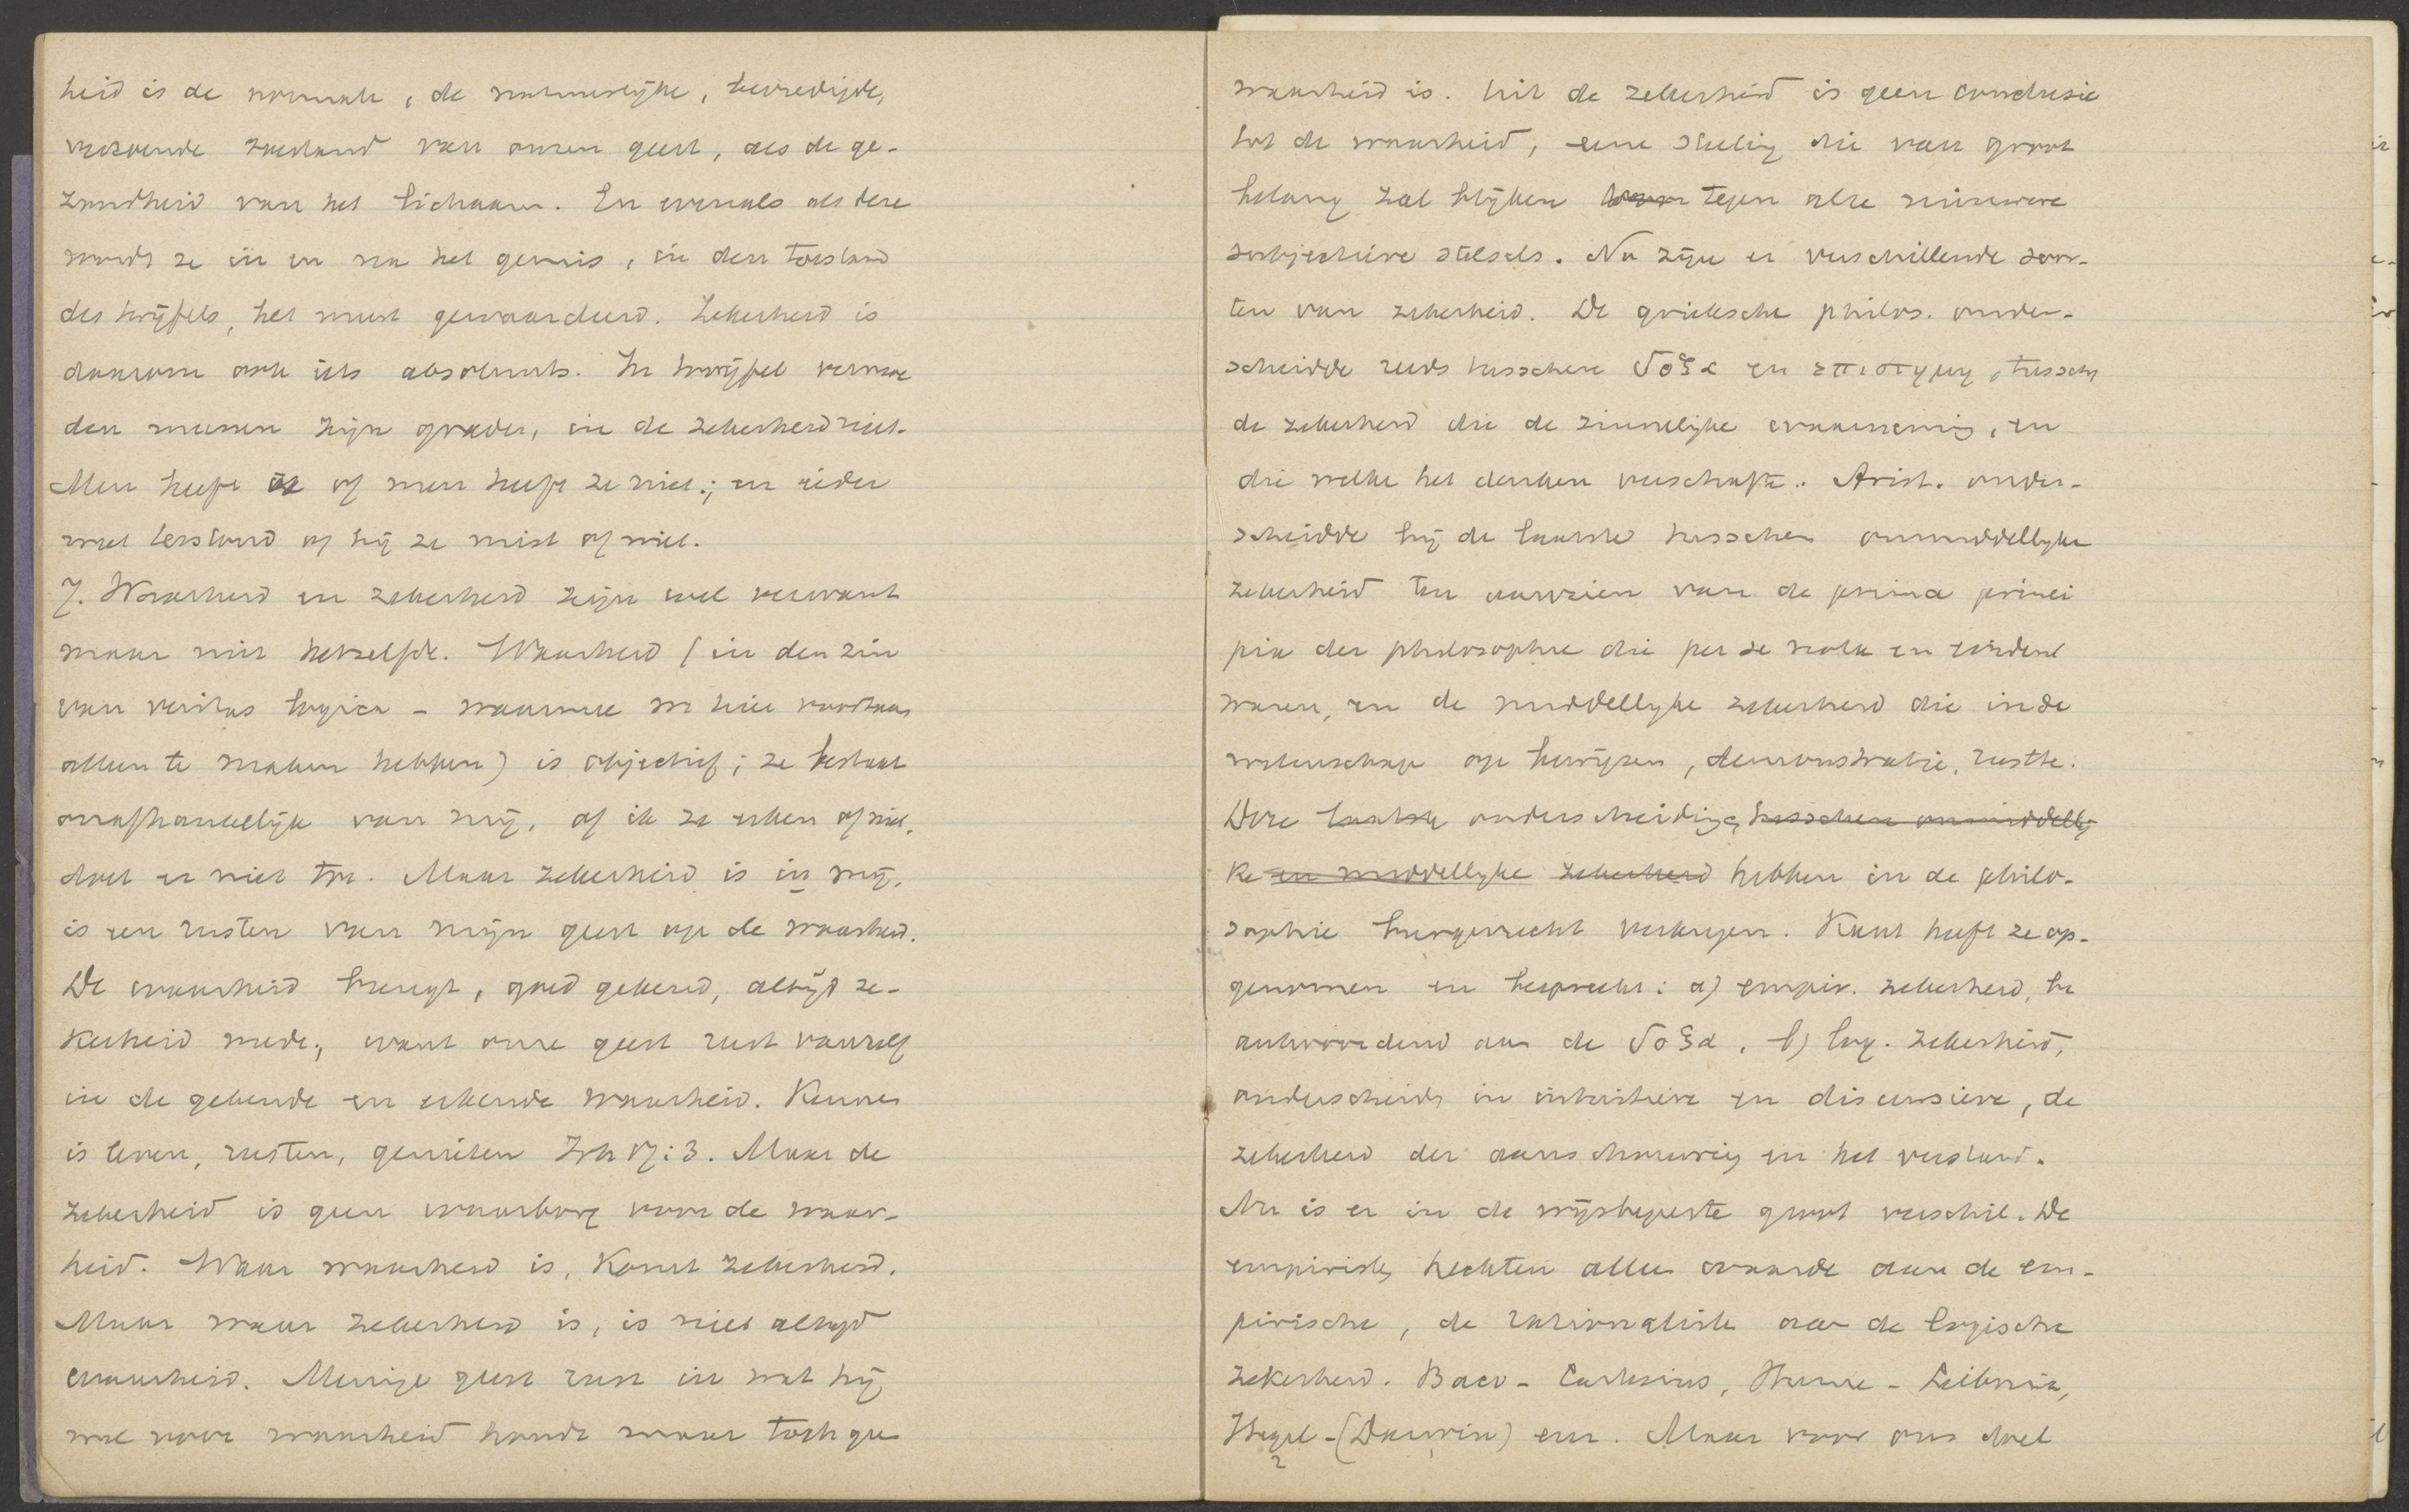 heid is de normale, de natuurlijke, bevredigde,
verzoende toestand van onzen geest, als de ge-
zondheid van het lichaam. En evenals als deze
wordt ze in en na het gemis, in den toestand
des twijfels, het meest gewaardeerd. Zekerheid is
daarom ook iets absoluuts. In twijfel vermoe
den meenen zijn graden, in de zekerheid niet.
Men heeft ze of men heeft ze niet; en ieder
weet terstond of hij ze mist of niet.
7. Waarheid en zekerheid zijn wel verwant
maar niet hetzelfde. Waarheid (in den zin
van veritas logica - waarmee we hier voorthans
alleen te maken hebben) is objectief; ze bestaat
onafhankelijk van mij, of ik ze erken of niet,
doet er niet toe. Maar zekerheid is in mij,
is een rusten van mijn geest op de waarheid.
De waarheid brengt, goed gekend, altijd ze-
kerheid mede, want onze geest rust vanzelf
in de gekende en erkende waarheid. Kennen
is leven, rusten, genieten Joh 17:3. Maar de
zekerheid is geen waarborg voor de waar-
heid. Waar waarheid is, komt zekerheid.
Maar waar zekerheid is, is niet altijd
waarheid. Menige geest rust in wat hij
wel voor waarheid houdt maar toch gee
waarheid is. Uit de zekerheid is geen conclusie
tot de waarheid, eene stelling die van groot
belang zal blijken tegen alle nieuwere
subjectieve stelsels. Nu zijn er verschillende soor-
ten van zekerheid. De grieksche philos. onder-
scheidde reeds tusschen δοξα en επιστημη, tusschen
de zekerheid die de zinnelijke waarneming, en
die welke het denken verschafte. Arist. onder-
scheidde bij de laatste tusschen onmiddellyke
zekerheid ten aanzien van de prima princi
pia der philosophie die per se nota en evident
waren, en de middellyke zekerheid die in de
wetenschap op bewijzen, demonstratie, rustte.
Deze laatste onderscheidingen tusschen onmiddelly
ke en middellyke zekerheid hebben in de philo-
sophie burgerrecht verkregen. Kant heeft ze op-
genomen en bespreekt: a) empir. zekerheid, be
antwoordend aan de δοξα, b) log. zekerheid,
onderscheiden in intuitieve en discursieve, de
zekerheid der aanschouwing en het verstand.
Nu is er in de wijsbegeerte groot verschil. De
empiristen hechten alle waarde aan de em-
pirische, de rationalisten aan de logische
zekerheid. Baco - Cartesius, Hume - Leibniz,
Hegel - (Darwin) enz. Maar voor ons doel
2